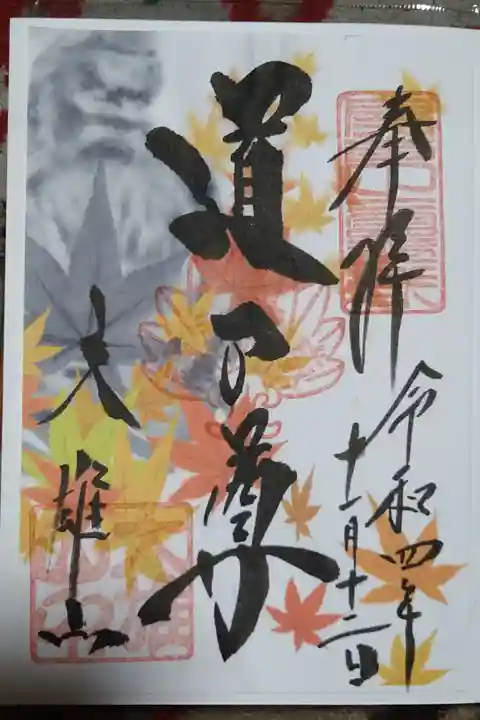 奉拝
令和四年
十一月十二日
道了尊
大雄山